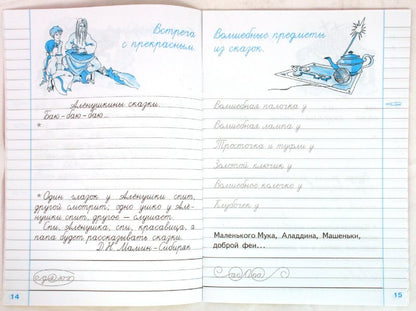 Встреча
с прекрасным.
Алёнушкины сказки.
Баю-баю-баю...
*
* Один глазок у Алёнушки спит,
другой смотрит; одно ушко у Алё-
нушки спит, другое — слушает.
Спи, Алёнушка, спи, красавица, а
папа будет рассказывать сказки.
Д.Н. Мамин-Сибиряк
14
Волшебные предметы
из сказок.
Волшебная палочка у
Волшебная лампа у
Тросточка и туфли у
Золотой ключик у
Волшебное колечко у
Клубочек у
Маленького Мука, Аладдина, Машеньки,
доброй феи...
15